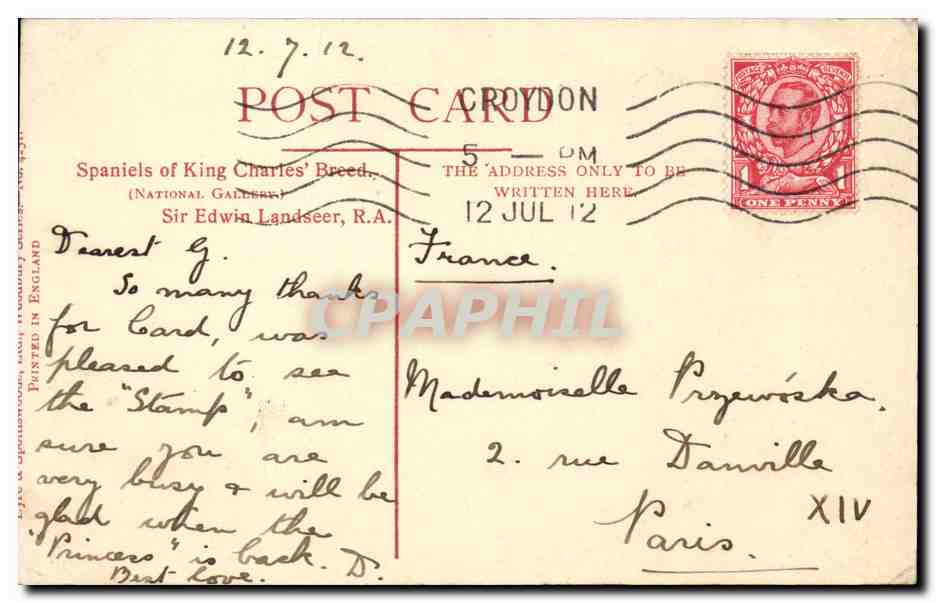 12.7.12.
POST CARD
CROYDON
5. — PM
12 JUL 12
POSTAGE REVENUE
ONE PENNY
Spaniels of King Charles' Breed.
(NATIONAL GALLERY.)
Sir Edwin Landseer, R.A.
THE ADDRESS ONLY TO BE
WRITTEN HERE.
PRINTED IN ENGLAND
Dearest G.
So many thanks
for Card, was
pleased to see
the "Stamp", am
sure you are
very busy & will be
glad when the
"Princess" is back. D.
Best love.
France.
Mademoiselle Przewóska.
2. rue Danville
Paris.
XIV
CPAPHIL